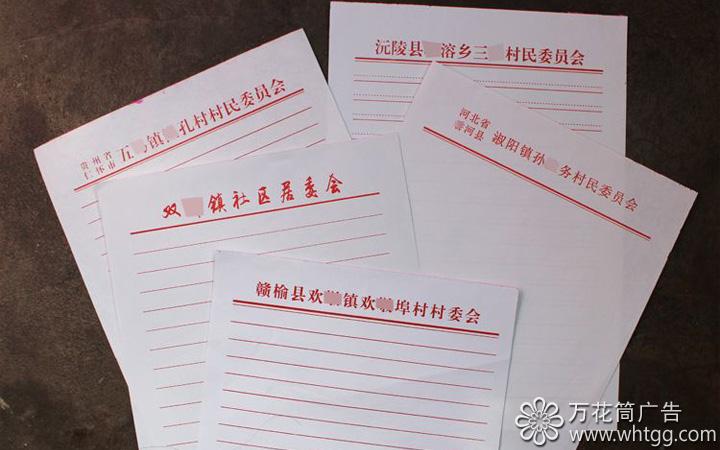 沅陵县溶乡三村民委员会
贵州省
仁怀市 五镇孔村村民委员会
河北省
香河县 淑阳镇孙务村民委员会
双镇社区居委会
赣榆县欢镇欢埠村村委会
万花筒广告
www.whtgg.com